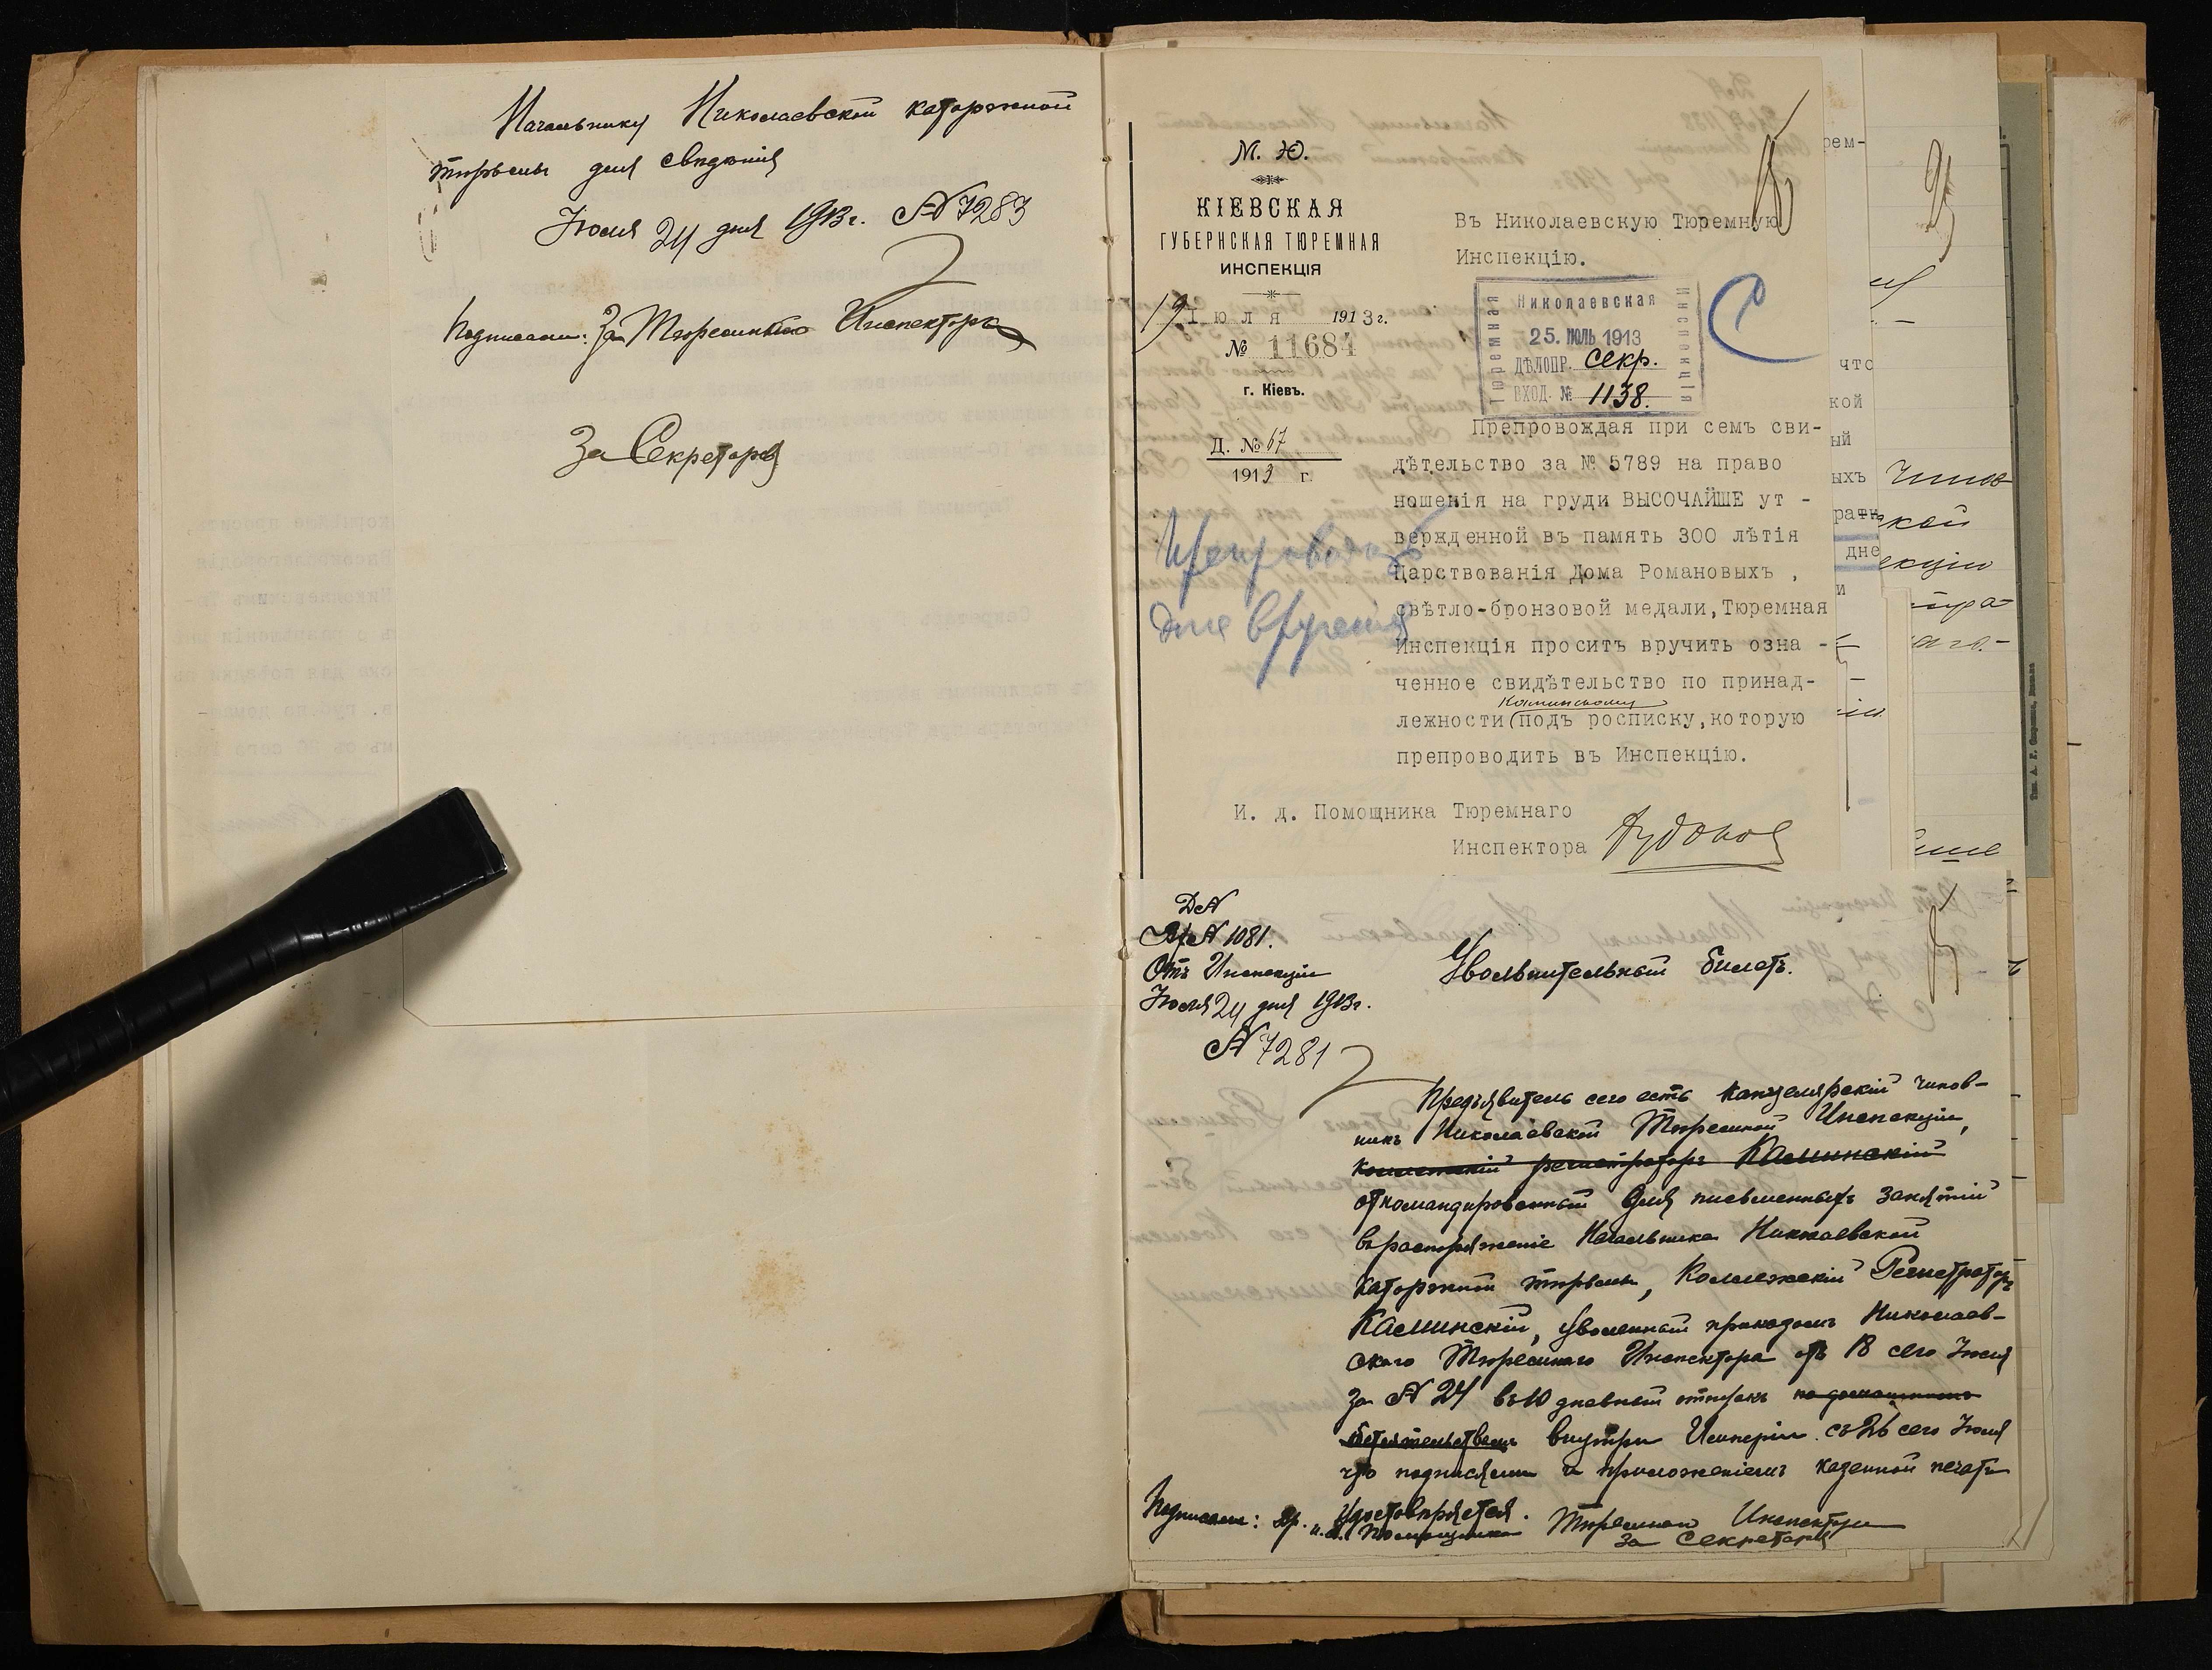 Начальнику Николаевской каторжной
тюрьмы для свѣдѣнія
Іюля 24 дня 1913 г. № 7283
Подписали: За Тюремнаго Инспектора
За Секретаря
М. Ю.
КІЕВСКАЯ
ГУБЕРНСКАЯ ТЮРЕМНАЯ
ИНСПЕКЦІЯ
19 Іюля 1913 г.
№ 11684
г. Кіевъ.
Д. № 67
1913 г.
Препроводить
для врученія
Въ Николаевскую Тюремную
Инспекцію.
Николаевская
Тюремная
Инспекція
25. ІЮЛЬ 1913
ДѢЛОПР. секр.
ВХОД. № 1138.
Препровождая при семъ сви-
дѣтельство за № 5789 на право
ношенія на груди ВЫСОЧАЙШЕ ут -
вержденной въ память 300 лѣтія
Царствованія Дома Романовыхъ ,
свѣтло-бронзовой медали, Тюремная
Инспекція проситъ вручить озна -
ченное свидѣтельство по принад-
Каминскому
лежности (подъ росписку, которую
препроводить въ Инспекцію.
И. д. Помощника Тюремнаго
Инспектора
рем-
что
кой
ный
ыхъ
дне
и
кой
екціи
Д №
№ 1081.
Отъ Инспекціи
Іюля 24 дня 1913 г.
№ 7281
Увольнительный билетъ.
Предъявитель сего есть канцелярскій чинов-
никъ Николаевской Тюремной Инспекціи,
коллежскій регистраторъ Каминскій
откомандированный для письменныхъ занятій
въ распоряженіе Начальника Николаевской
каторжной тюрьмы, Коллежскій Регистраторъ
Каминскій, уволенный приказомъ Николаев-
скаго Тюремнаго Инспектора отъ 18 сего Іюля
за № 24 въ 10 дневный отпускъ по домашнимъ
обстоятельствамъ внутри Имперіи съ 26 сего Іюля
что подписями и приложеніемъ казенной печати
удостовѣряется.
Подписали: и.д. Помощника Тюремнаго Инспектора
За Секретаря